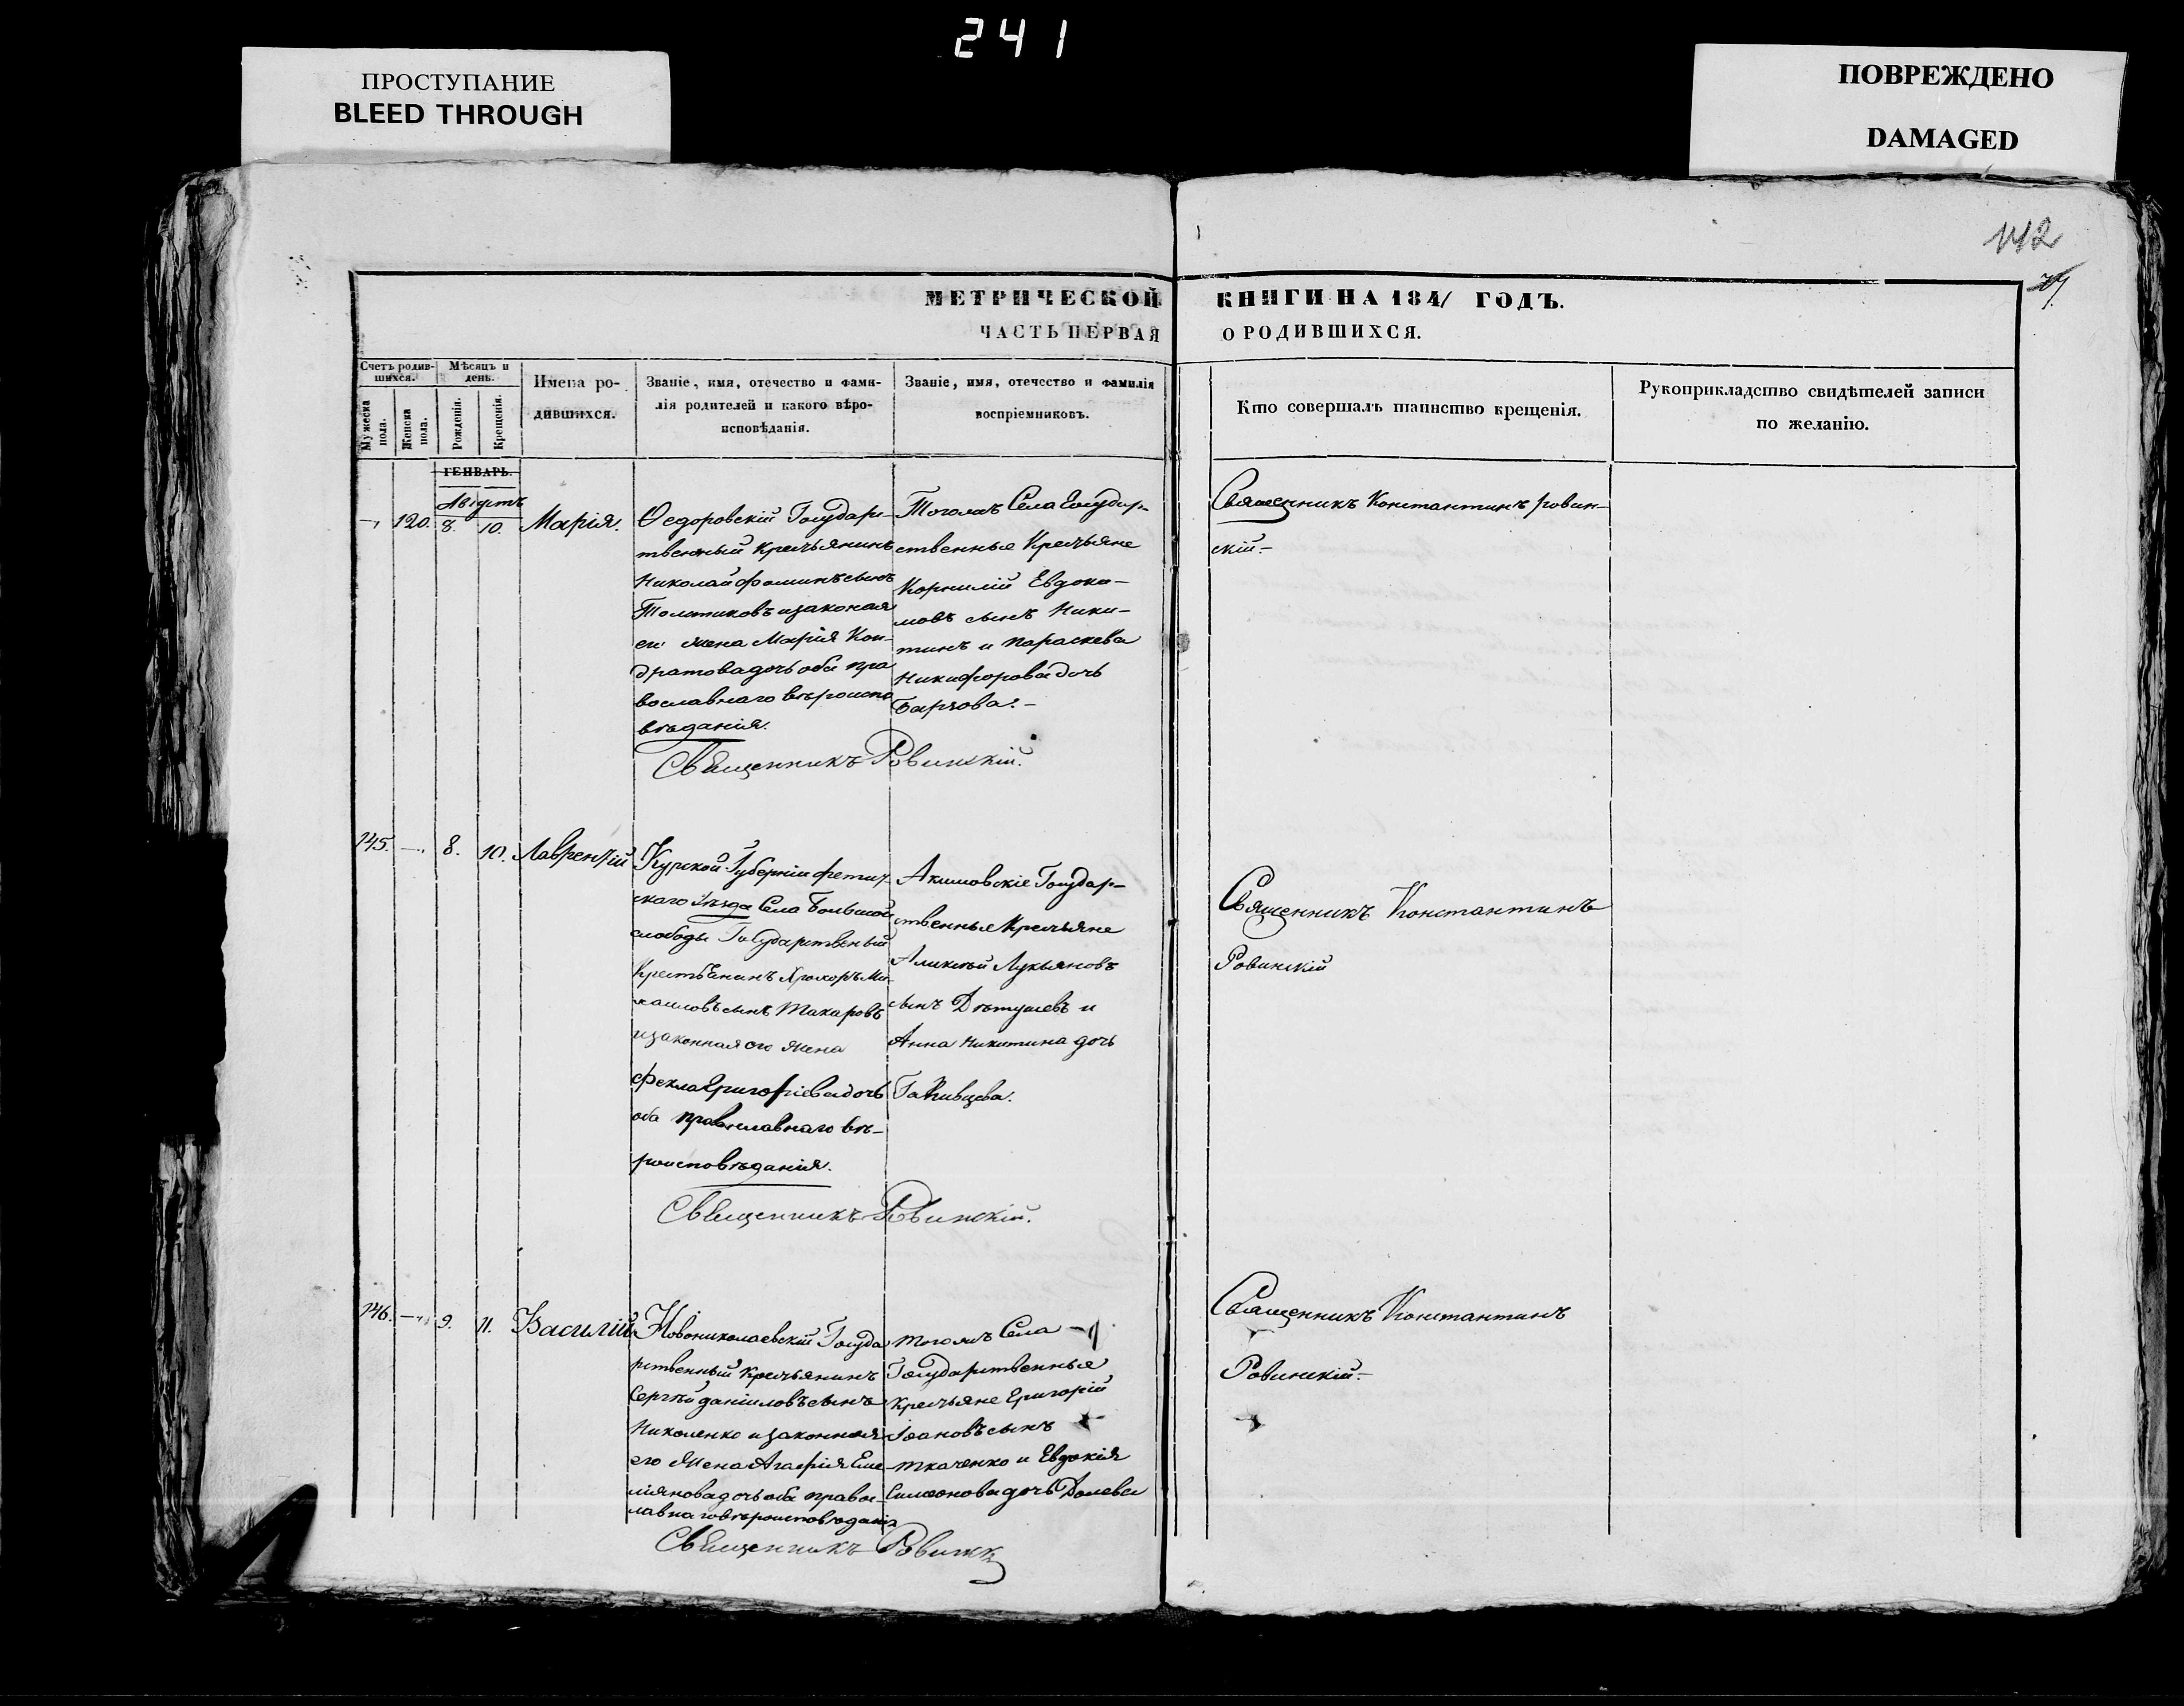 241
ПРОСТУПАНИЕ
BLEED THROUGH
ПОВРЕЖДЕНО
DAMAGED
142
МЕТРИЧЕСКОЙ КНИГИ НА 1841 ГОДЪ.
ЧАСТЬ ПЕРВАЯ О РОДИВШИХСЯ.
Счетъ родив-
шихся.
Мужеска
пола.
Женска
пола.
Мѣсяцъ и
день.
Рожденія.
Крещенія.
Имена ро-
дившихся.
Званіе, имя, отечество и фами-
лія родителей и какого вѣро-
исповѣданія.
Званіе, имя, отечество и фамилія
воспріемниковъ.
Кто совершалъ таинство крещенія.
Рукоприкладство свидѣтелей записи
по желанію.
ГЕНВАРЬ.
Августъ
120. 8. 10. Марія.
Ѳедоровскій Государс-
твенный крестьянинъ
Николай Фоминъ сынъ
Толстиковъ и законая
ег жена Марія Кон-
дратова дочь оба пра
вославнаго вѣроиспо
вѣданія.
Тогожъ Села Государ-
ственные Крестьяне
Корнилій Евдоки-
мовъ сынъ Ники-
тинъ и Параскева
Никифорова дочь
Священникъ Константинъ Ровин-
скій.-
Священникъ Ровинскій.
145. —. 8. 10. Лаврентій
Курской Губерніи
скаго Уѣзда Села Большой
слободы Государственый
Крестьянинъ Прохоръ Ми-
хаиловъ сынъ Макаровъ
и законная его жена
Фекла Григоріева дочь
оба православнаго вѣ-
роисповѣданія.
Акимовскіе Государ-
ственные Крестьяне
Алексѣй Лукьяновъ
сынъ и
Анна Никитина дочь
Священникъ Константинъ
Ровинскій
Священникъ Ровинскій.
146. — 9. 11. Василій
Новониколаевскій Госуда
рственный крестьянинъ
Сергѣй Даніиловъ сынъ
Николенко и законная
его жена Агафія Еме-
ліянова дочь оба правос-
лавнаго вѣроисповѣданія
Тогожъ Села
Государственные
Крестьяне Григорій
Іоановъ сынъ
Ткаченко и Евдокія
Симеонова дочь
Священникъ Константинъ
Ровинскій.-
Священникъ Ровинск